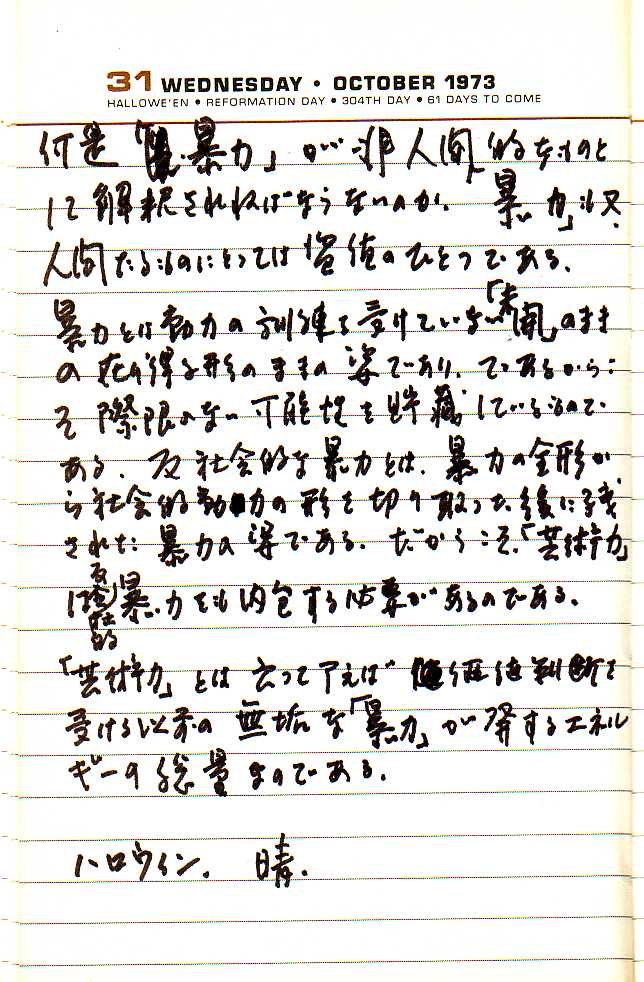 31 WEDNESDAY • OCTOBER 1973
HALLOWE'EN • REFORMATION DAY • 304TH DAY • 61 DAYS TO COME
何是「暴力」が非人間的なものと
して解釈されねばならないのか。「暴力」も又、
人間たるものにとっては資値のひとつである。
暴力とは動力の訓練を受けていない「未開」のまま
の 形のままの姿であり、であるからこ
そ際限のない可能性を貯蔵しているので
ある。反社会的な暴力とは、暴力の全形か
ら社会的動力の形を切り取った後に残
された暴力の姿である。だからこそ、「芸術力」
は反社会的暴力をも内包する必要があるのである。
「芸術力」とは云って了えば 価値判断を
受ける以前の無垢な「暴力」が発するエネル
ギーの総量なのである。
ハロウィン。 晴。